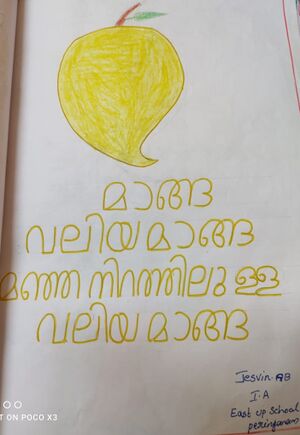 മാങ്ങ
വലിയ മാങ്ങ
മഞ്ഞ നിറത്തിലു ള്ള
വലിയ മാങ്ങ
Jesvin
I.A
East up School
OT ON POCO X3